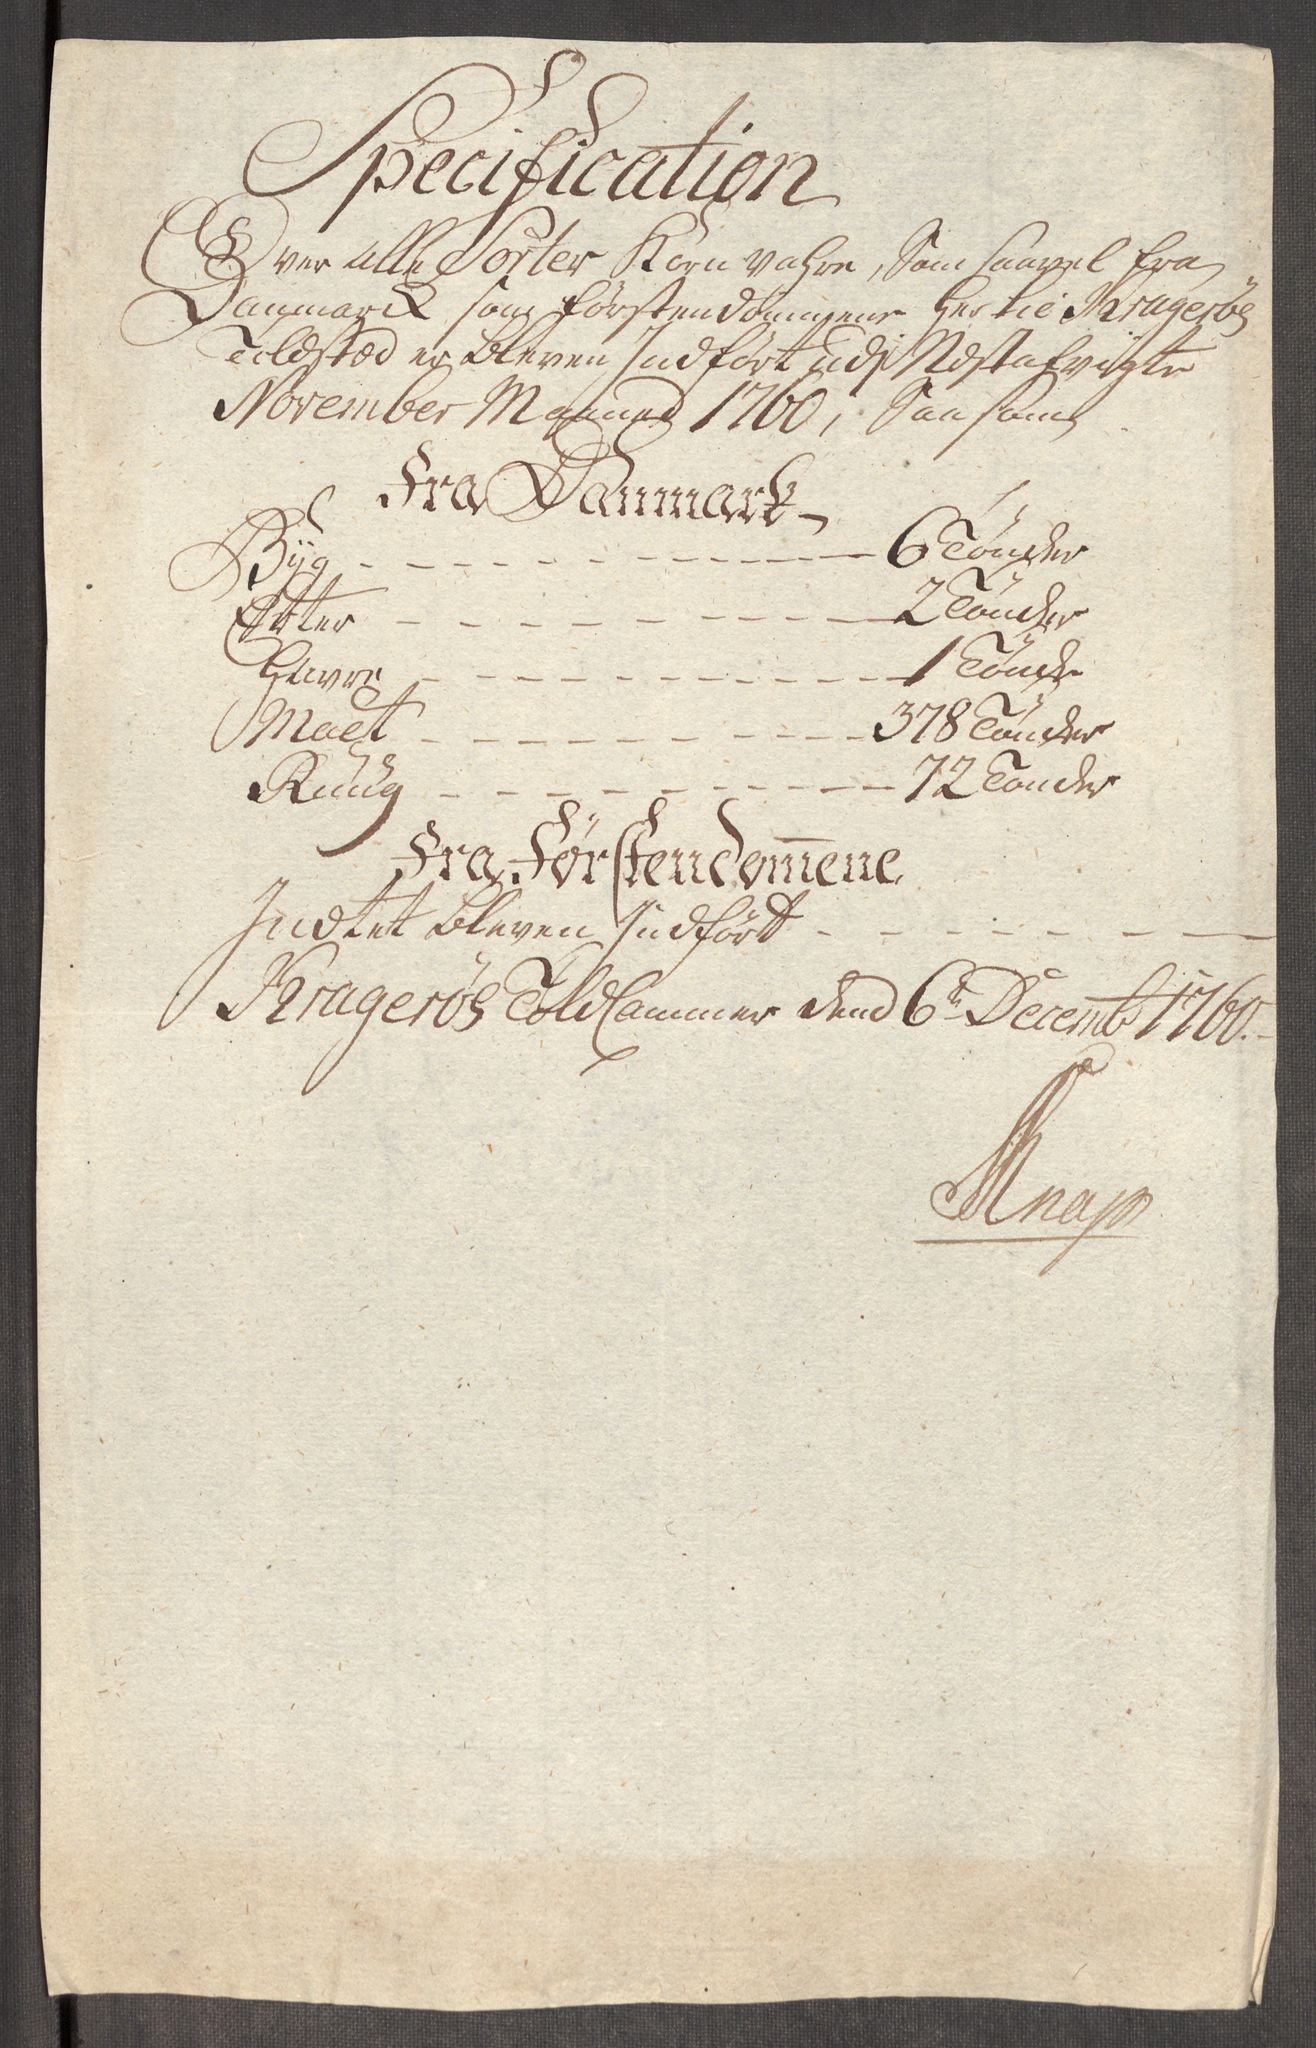 Specification
Over alle Sorter Korn vahre, Som saavel fra
Danmarck som førstendømmene her til Kragerøes
Toldstæd er bleven Indført udj Nestafvigte
November Maaned 1760, Saasom
Fra Danmark
Byg - - - - - - - - 6 Tønder
Ertter - - - - - - - - 2 Tønder
Havre - - - - - - - - 1 Tønde
Malt - - - - - - - - 378 Tønder
Ruug - - - - - - - - 72 Tønder
Fra Førstendom̅ene
Indtet bleven Indført - - - - - -
Kragerøes Told Cammer dend 6te Decemb 1760.
Knap